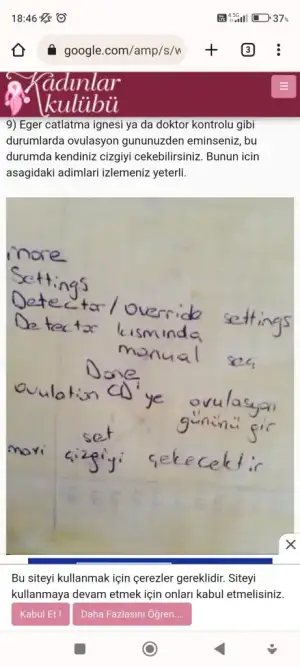 18:46
4.5G
37%
google.com/amp/s/w
3
Kadınlar
kulübü
9) Eger catlatma ignesi ya da doktor kontrolu gibi
durumlarda ovulasyon gununuzden eminseniz, bu
durumda kendiniz cizgiyi cekebilirsiniz. Bunun icin
asagidaki adimlari izlemeniz yeterli.
more
Settings
Detector/override settings
Detector kısmında
manual seç
Done
ovulation CD'ye ovulasyon
gününü gir
set
mavi çizgiyi çekecektir
Bu siteyi kullanmak için çerezler gereklidir. Siteyi
kullanmaya devam etmek için onları kabul etmelisiniz.
Kabul Et !
Daha Fazlasını Öğren...